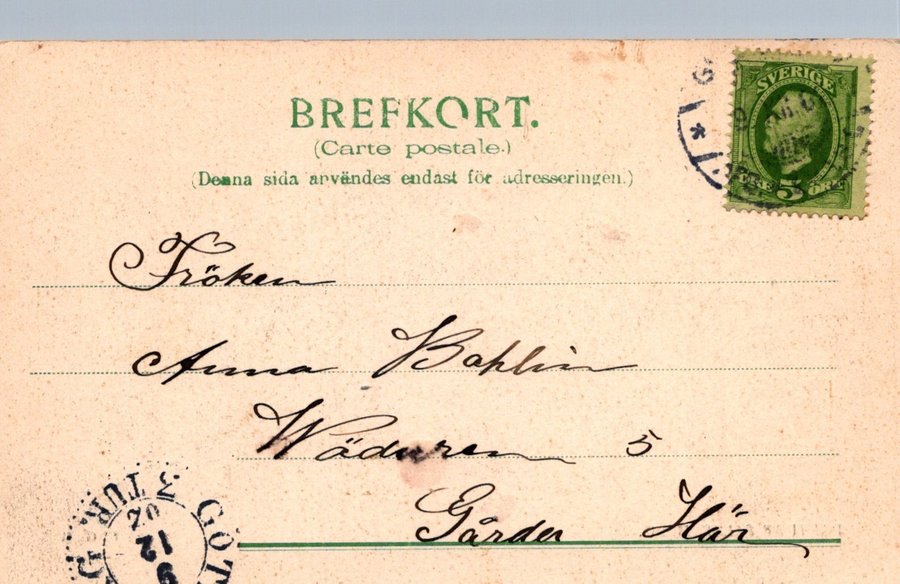 BREFKORT.
(Carte postale.)
(Denna sida användes endast för adresseringen.)
SVERIGE
5 ÖRE
Fröken
Anna Bohlin
Wäduren 5
Gårda Här
GÖT
3 TUR
02
12
9